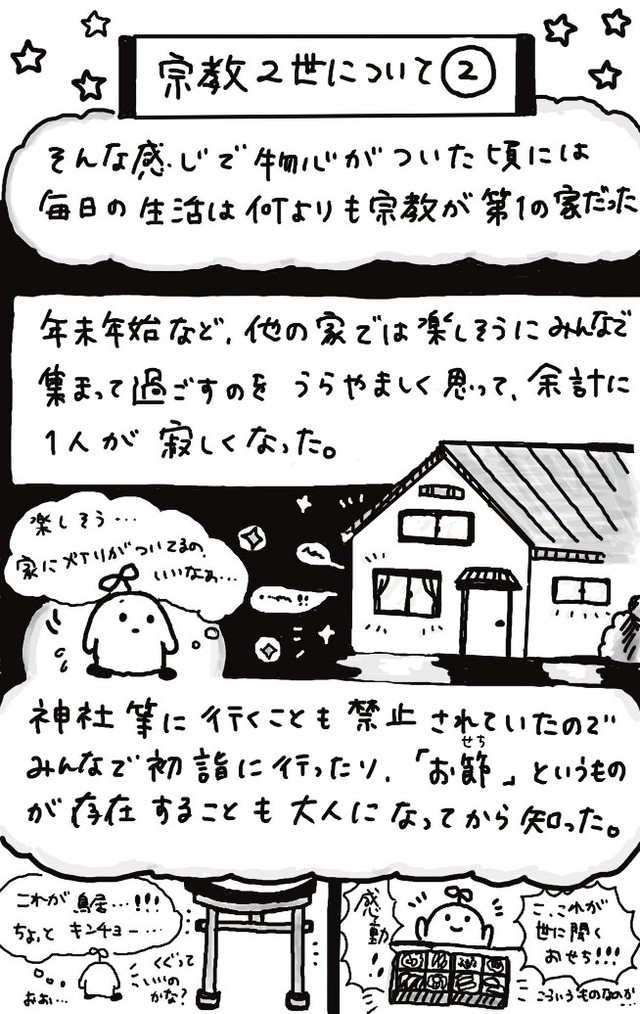 宗教2世について②
そんな感じで物心がついた頃には
毎日の生活は何よりも宗教が第1の家だった
年末年始など、他の家では楽しそうにみんなで
集まって過ごすのをうらやましく思って、余計に
1人が寂しくなった。
楽しそう…
家にメイリがついてるの、
いいなぁ…
…!!
神社等に行くことも禁止されていたので
みんなで初詣に行ったり、「お節」というもの
せち
が存在することも大人になってから知った。
これが鳥居…!!!
ちょっとキンチョー…
おぉ…
くぐって
いいの
かな?
感動!
こ、これが
世に聞く
おせち!!!
こういうものなのか